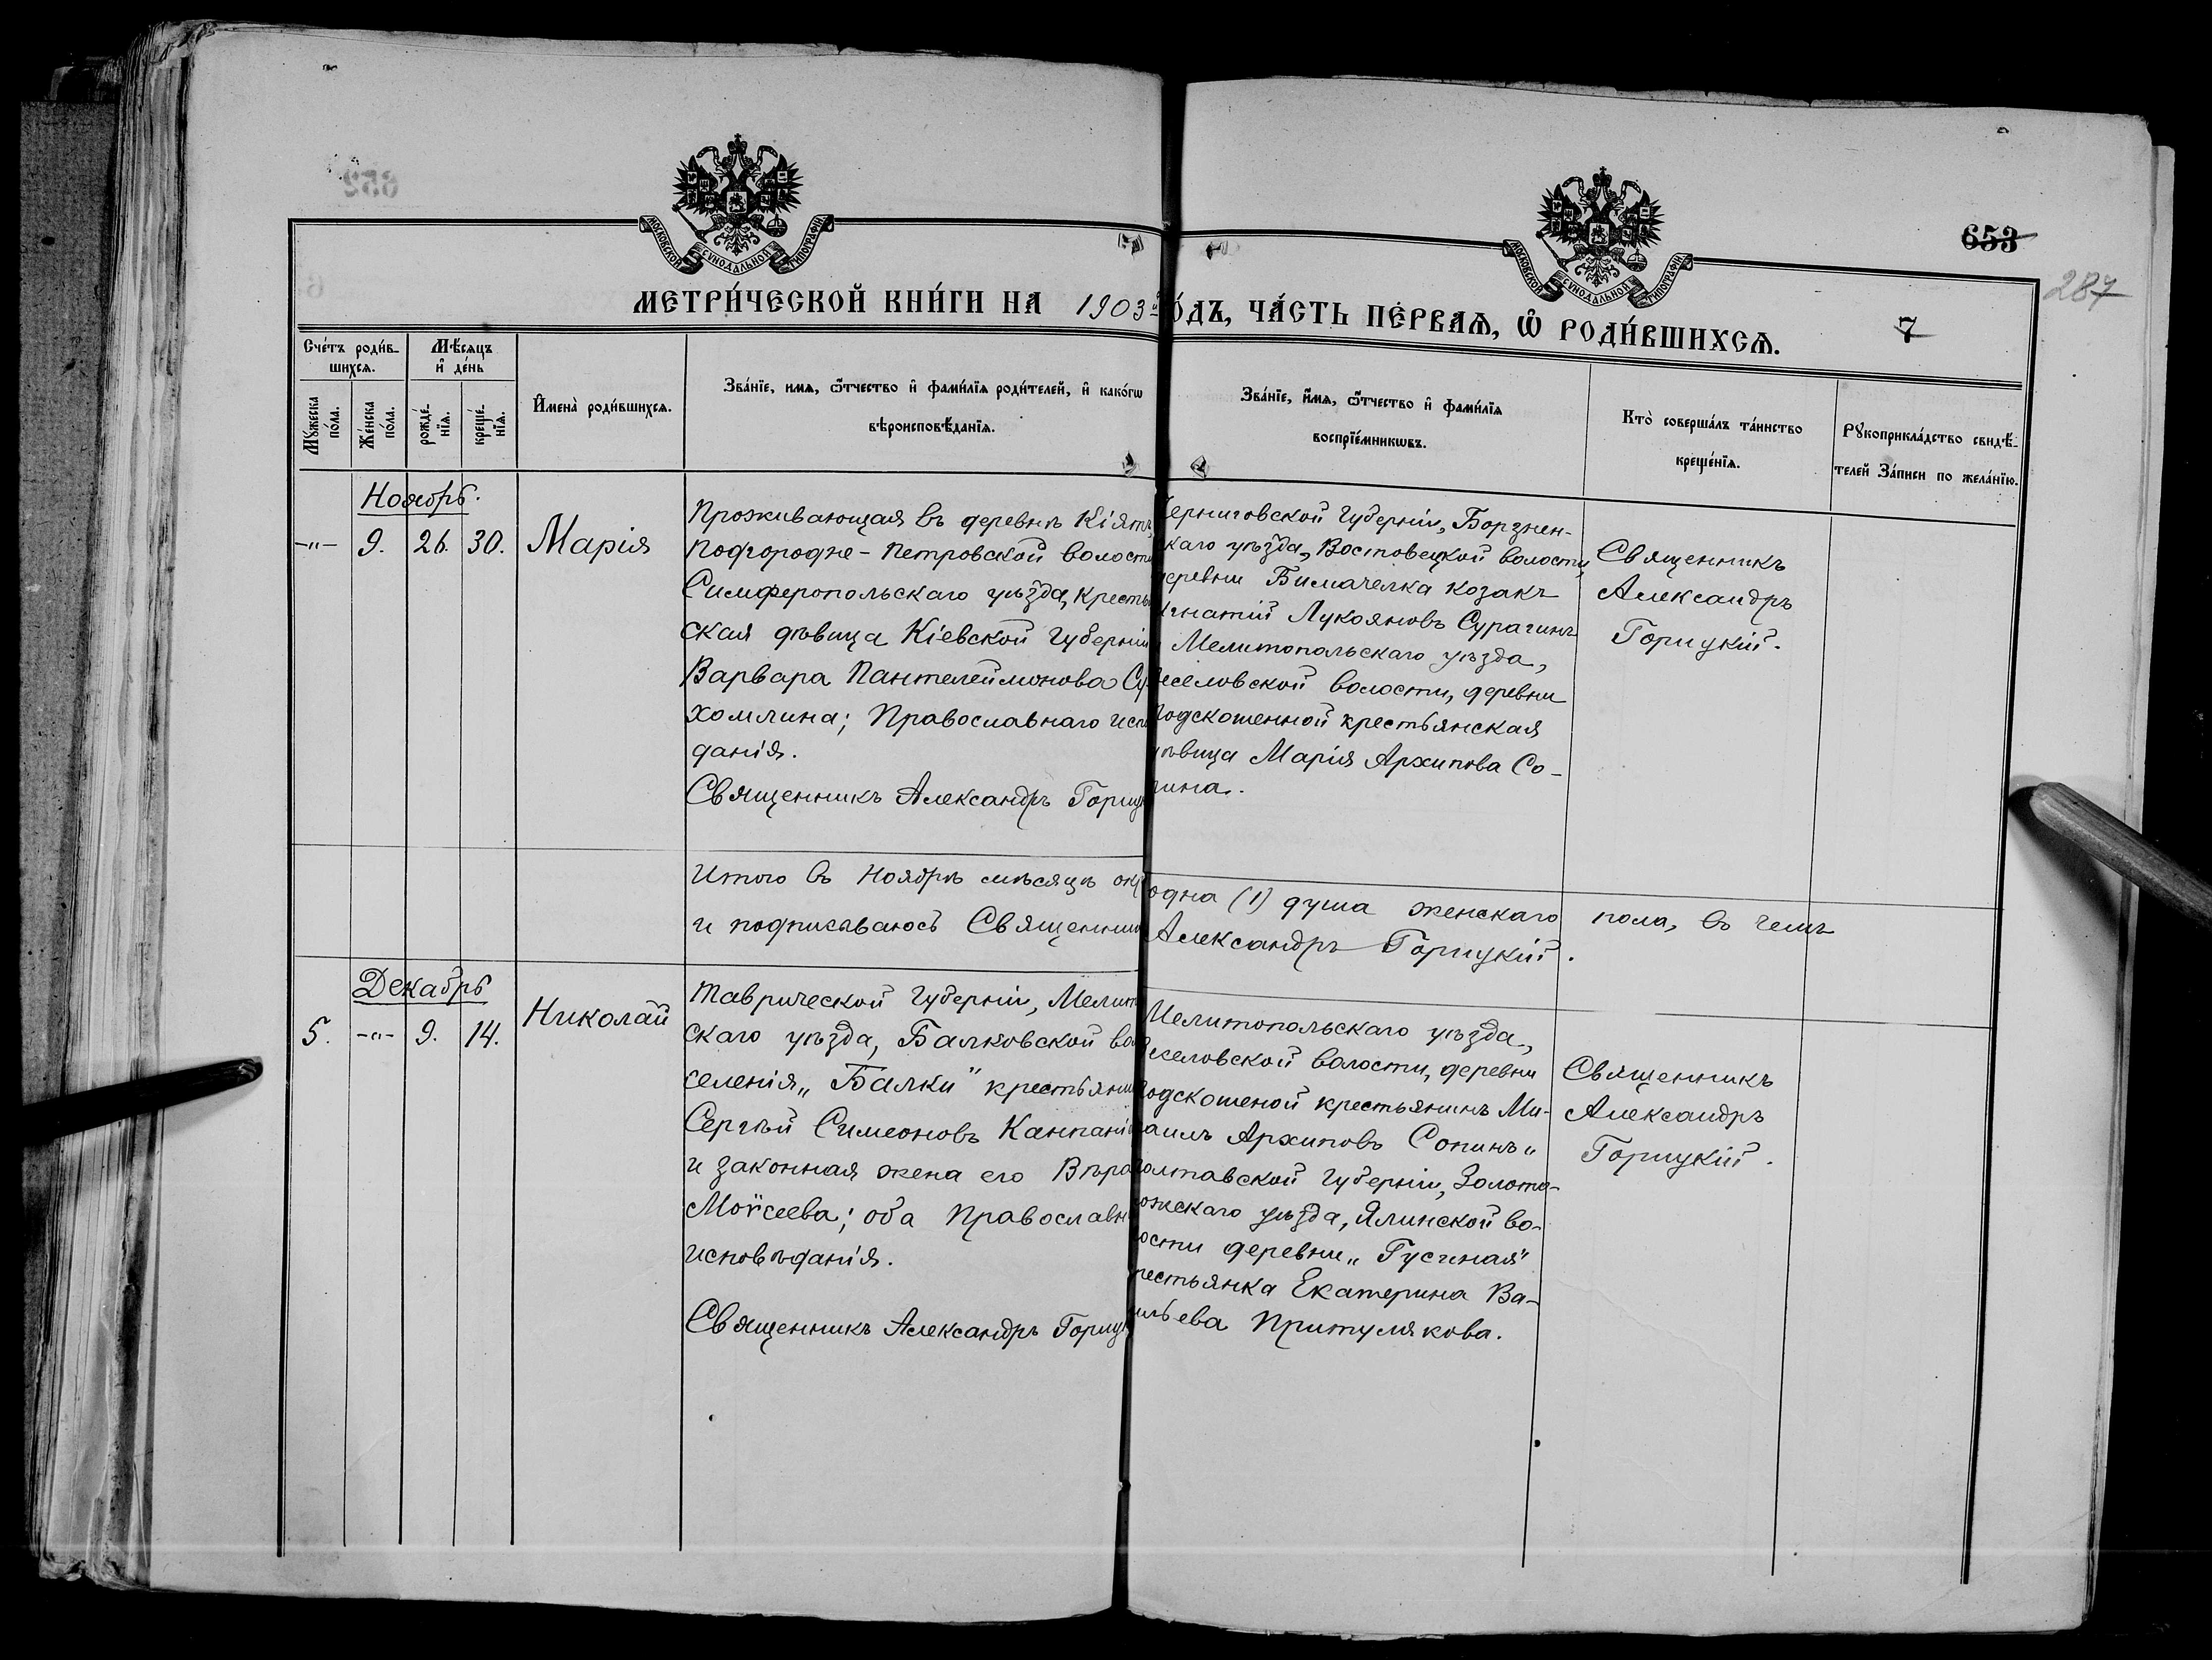 653
287
МЕТРИ́ЧЕСКОЙ КНИ́ГИ НА 1903й
О́ДЪ, ЧА́СТЬ ПЕ́РВАѦ, Ѡ҆ РОДИ́ВШИХСѦ.
7
Сче́тъ роди́в-
шихсѧ.
Мѣ́сяцъ
и҆ де́нь
Мꙋ́жеска
по́ла.
Же́нска
по́ла.
рожде́-
нїѧ.
креще́-
нїѧ.
И҆мена̀ роди́вшихсѧ.
Зва́нїе, имѧ, ѻ҆́тчество и҆ фами́лїѧ роди́телей, и҆ како́гѡ
вѣроисповѣ́данїѧ.
Зва́нїе, и҆́мѧ, ѻ҆́тчество и҆ фами́лїѧ
воспрїе́мникѡвъ.
Кто̀ соверша́лъ та́инство
креще́нїѧ.
Рꙋкоприкла́дство свидѣ́-
телей За́писи по жела́нїю.
Ноябрь.
-„- 9. 26. 30. Марія
Проживающая въ деревнѣ Кіятъ,
Подгородне-Петровской волости
Симферопольскаго уѣзда, кресть
ская дѣвица Кіевской Губерніи
Варвара Пантелеймонова Су-
хомлина; Православнаго испо
данія.
Священникъ Александръ Гориц
Черниговской Губерніи, Борзнен-
скаго уѣзда, волости,
деревни козакъ
Игнатій Лукояновъ
и Мелитопольскаго уѣзда,
Веселовской волости, деревни
Подскошенной крестьянская
дѣвица Марія Архипова Со-
пина.
Священникъ
Александръ
Горицкій.
Итого въ Ноябрѣ мѣсяцѣ
одна (1) душа женскаго пола, въ чемъ
и подписываюсь Священникъ
Александръ Горицкій.
Декабрь
5. -„- 9. 14. Николай
Таврической Губерніи, Мелит
скаго уѣзда, Балковской во
селенія „Балки" крестьянин
Сергѣй Симеоновъ
и законная жена его Вѣра
Моѵсеева; оба Православн
исповѣданія.
Священникъ Александръ Гориц
Мелитопольскаго уѣзда,
Веселовской волости, деревни
Подскошеной крестьянинъ Ми-
хаилъ Архиповъ Сопинъ и
Полтавской Губерніи, Золото-
ножскаго уѣзда, Ялинской во-
лости деревни „Гусиная"
крестьянка Екатерина Ва-
сильева Притулякова.
Священникъ
Александръ
Горицкій.